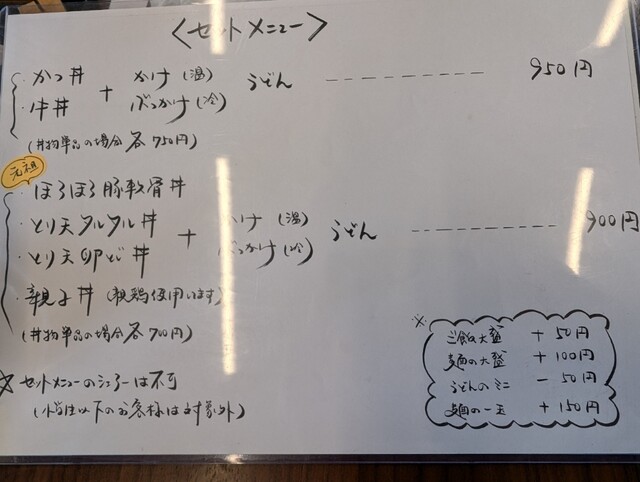 〈セットメニュー〉
・かつ丼 + かけ(温) うどん 950円
・牛丼 ぶっかけ(冷)
(丼物単品の場合 各750円)
元祖
・ほろほろ豚軟骨丼
・とり天タルタル丼 + かけ(温) うどん 900円
・とり天卵とじ丼 ぶっかけ(冷)
・親子丼 (親鶏使用います)
(丼物単品の場合 各700円)
☆セットメニューのシェアーは不可
(小学生以下のお客様は対象外)
※
ご飯大盛 + 50円
麺の大盛 + 100円
うどんのミニ - 50円
麺の一玉 + 150円